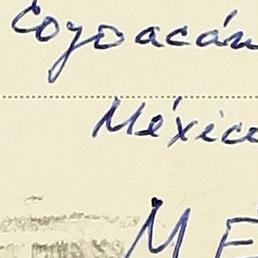 Coyoacán
México
ME